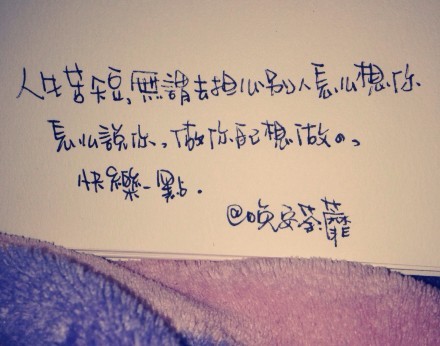 人生苦短，無謂去担心別人怎么想你
怎么說你，做你自己想做の，
快樂一點．
@晚安荼蘼